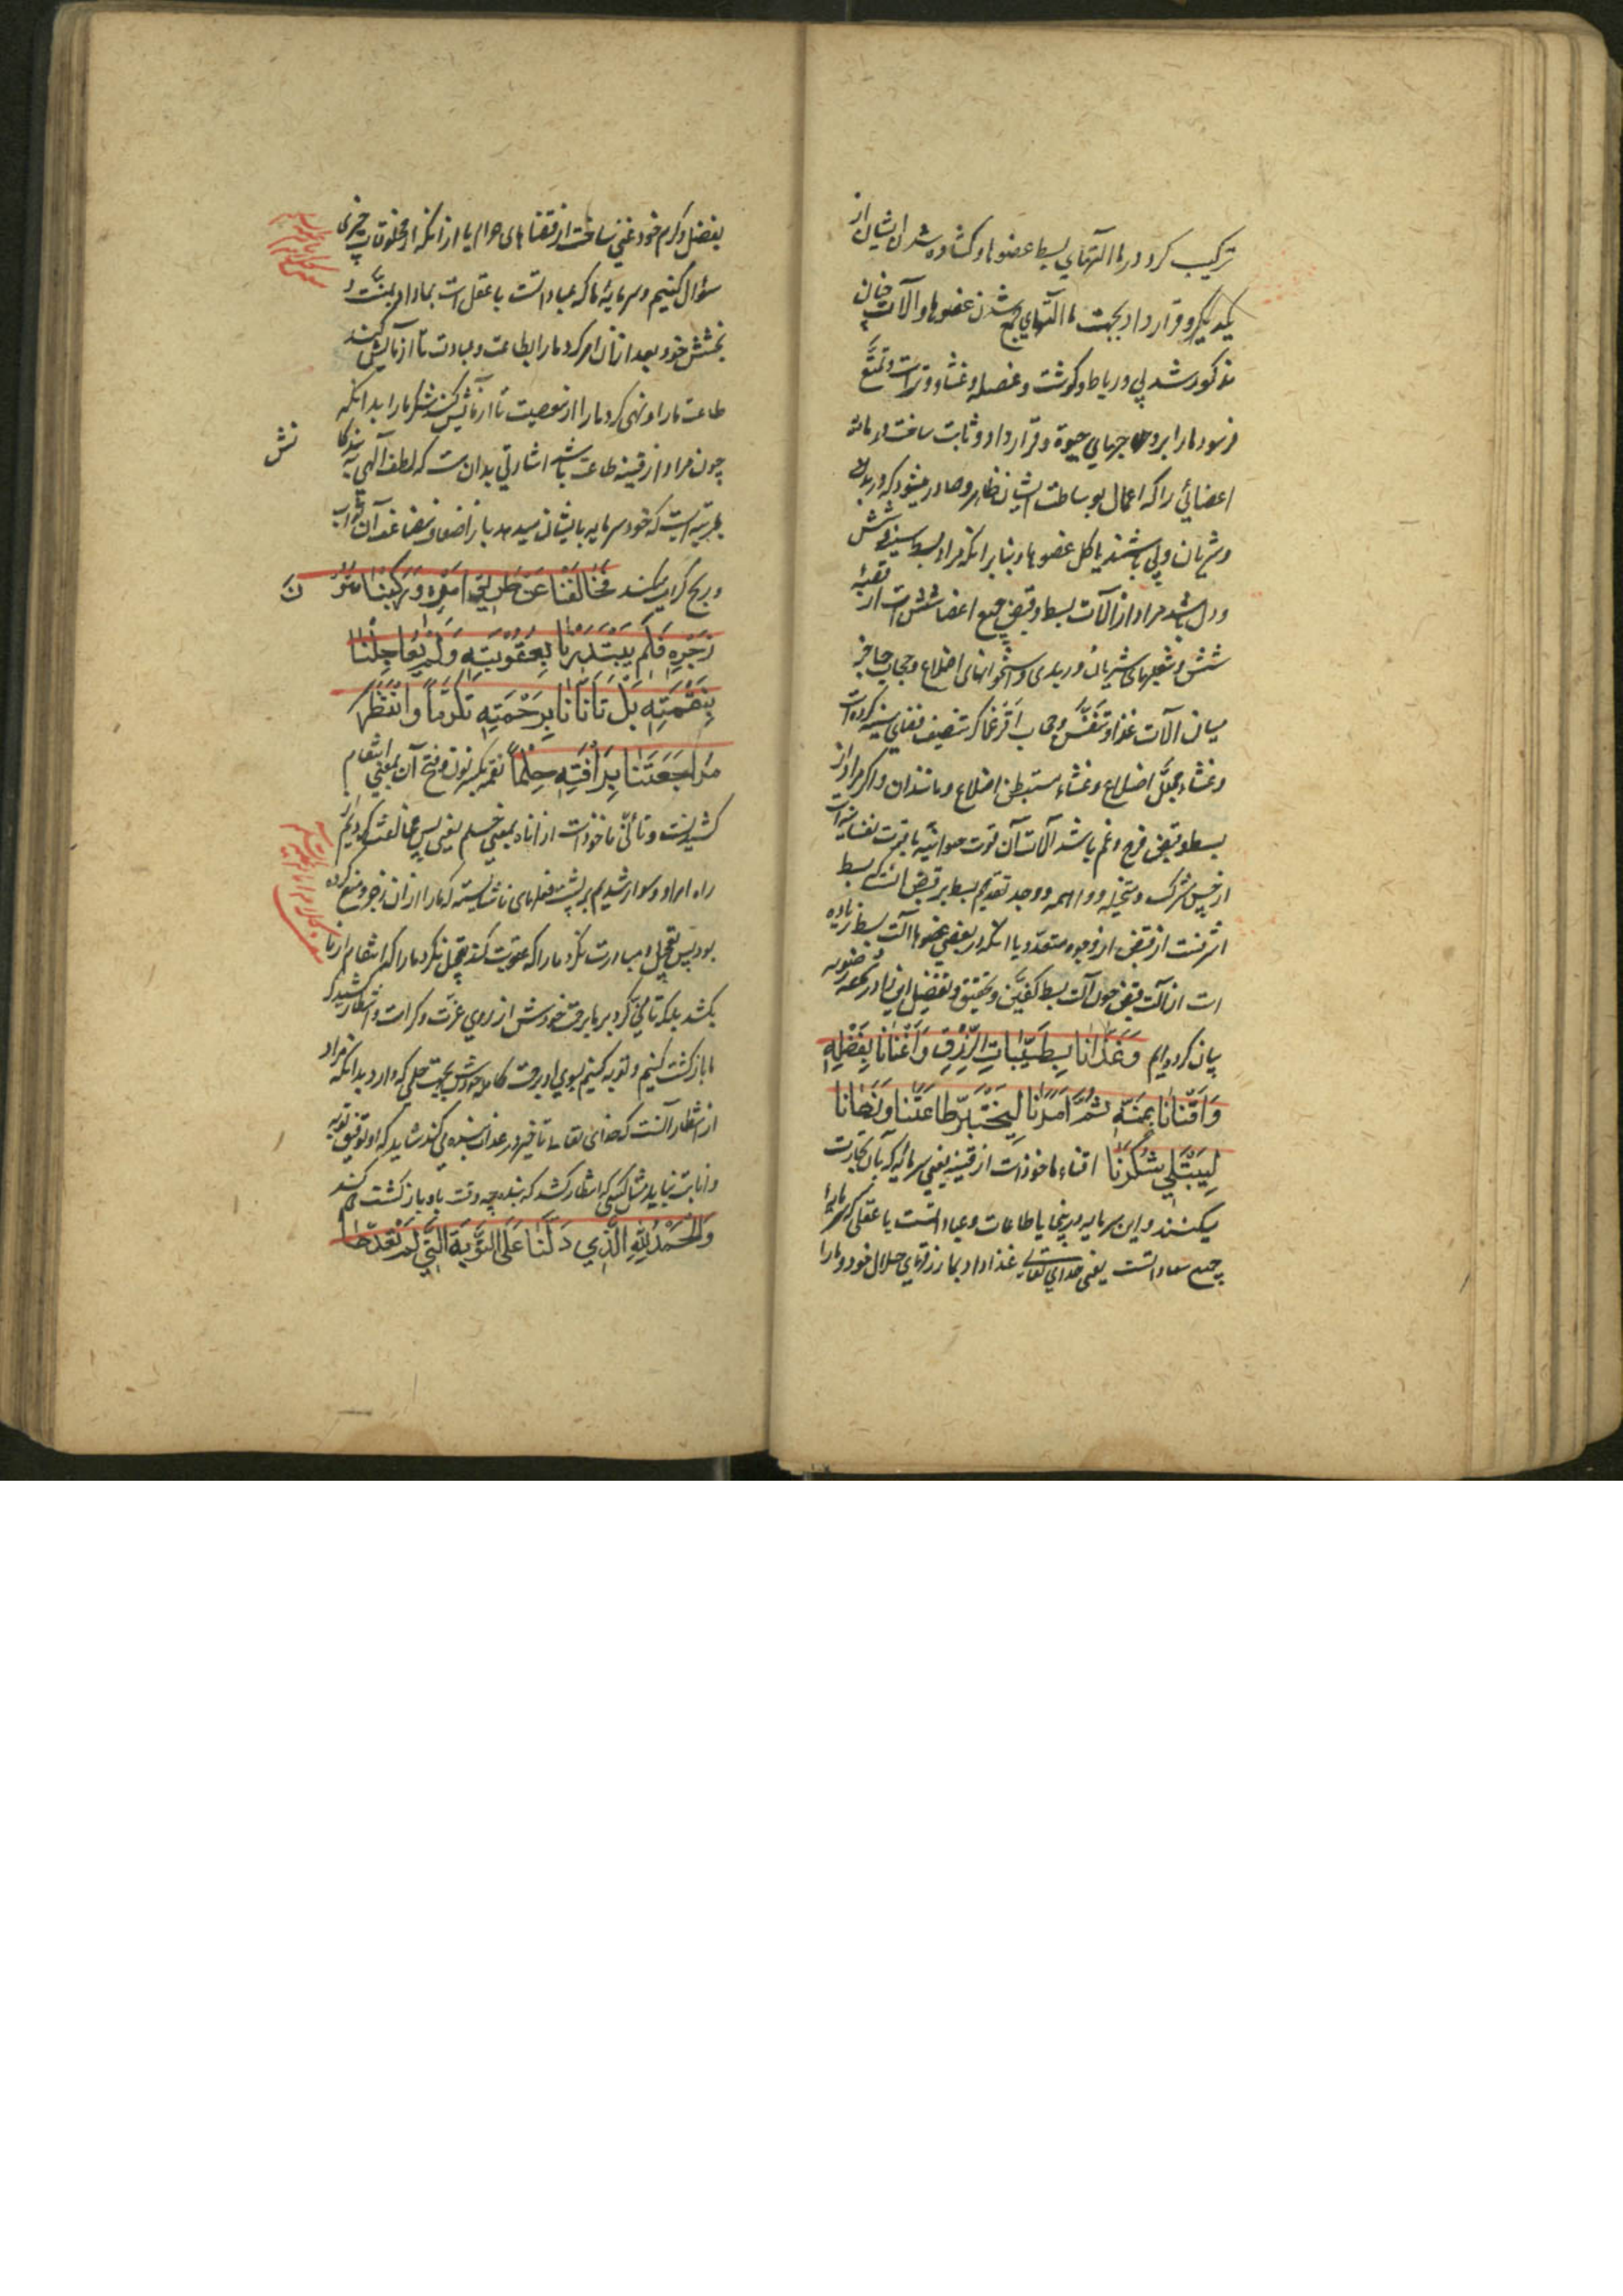 ترکیب کرد در ما آلتهای بسط عضوها و کشاده شدن ایشان از
یکدیگر و قرار داد بجهت ما آلتهای جمع شدن عضوها و آلات چنان
مذکور شد پی و رباط و کوشت و عضله و غشا و وتراست و تمتع
فرمود ما را بروحهای حیوة و قرار داد و ثابت ساخت در ما
اعضائی را که اعمال بوساطت ایشان ظاهر و صادر میشود که در بدن
و شریان و پی باشند یا کل عضوها و بنابر انکه مراد بسط سینه و شش
و دل باشد مراد از آلات بسط و قبض جمیع اعضا شش است از
شش و شعبهای شریان وریدی و استخوانهای اضلاع و حجاب حاجز
میان آلات غذا و تنفس و حجاب که تنصیف فضای سینه کرده است
و غشاء مجلل اضلاع و غشاء مستبطن اضلاع و مانند آن و اگر مراد از
بسط و قبض فرح و غم باشد آلات آن قوت حیوانیه با قوت نفسانیه است
از حس مشترک و متخیله و واهمه و وجه تقدیم بسط بر قبض انست که بسط
اشرفست از قبض از وجوه متعدد یا انکه در بعضی عضوها آلت بسط زیاده
است از آلت قبض چون آلت بسط کفین و تحقیق و تفصیل این را در
بیان کرده‌ایم وَغَذَانَا بِطَيِّبَاتِ الرِّزْقِ وَأَغْنَانَا بِفَضْلِهِ
وَأَقْنَانَا بِمَنِّهِ ثُمَّ أَمَرَنَا لِيَخْتَبِرَ طَاعَتَنَا وَنَهَانَا
لِيَبْتَلِيَ شُكْرَنَا اقناء ماخوذ است از قنیه یعنی سرمایه که بآن تجارت
میکنند و این سرمایه در اینجا یا طاعات و عباداتست یا عقلی که سرمایهٔ
جمیع سعاداتست یعنی خدای تعالی غذا داد بما رزقهای حلال خود و ما را
بفضل و کرم خود غنی ساخت از فقنا های حرام یا از انکه از مخلوقات چیزی
سؤال کنیم و سرمایهٔ ما که عباداتست یا عقل است بما داد بمنت و
بخشش خود و بعد از آن امر کرد ما را بطاعت و عبادت تا آزمایش کند
طاعت ما را و نهی کرد ما را از معصیت تا آزمایش کند شکر ما را بدانکه
چون مراد از قنیه طاعت باشد اشارتی بدان است که لطف آلهی به بندکا
نش
بمرتبه ایست که خود سرمایه بایشان میدهد باز اضعاف مضاعف آن ثواب
و ربح کرامت کند فَخَالَفْنَا عَنْ طَرِيقِ أَمْرِهِ وَرَكِبْنَا مُتُوْ
نَ
زَجْرِهِ فَلَمْ يَبْتَدِرْنَا بِعُقُوبَتِهِ وَلَمْ يُعَاجِلْنَا
بِنِقْمَتِهِ بَلْ تَأَنَّانَا بِرَحْمَتِهِ تَكَرُّمًا وَانْتَظَرَ
مُرَاجَعَتَنَا بِرَأْفَتِهِ حِلْمًا نقمه بکسر نون و فتح آن بمعنی انتقام
کشیدنست و تأنّی ماخوذ است از اناه بمعنی حلم یعنی پس مخالفت کردیم از
راه امر او و سوار شدیم بر پشت فعلهای ناشایسته که ما را از آن زجر و منع کرده
بود پس تعجیل و مبادرت نکرد ما را که عقوبت کند و تعجیل نکرد ما را که انتقام از ما
بکشد بلکه تأنّی کرد بر ما برحمت خودش از روی عزت و کرامت و انتظار کشید که
ما بازکشت کنیم و توبه کنیم بسوی او برأفت کامله خودش بجهت حلمی که دارد بدانکه مراد
از انتظار آنست که خدای تعالی تاخیر در عذاب بنده می کند شاید که او توفیق توبه
و انابت بیابد مثل کسی که انتظار کشد که بنده چه وقت باو بازکشت می کند
وَالْحَمْدُ لِلَّهِ الَّذِي دَلَّنَا عَلَى التَّوْبَةِ الَّتِي لَمْ نُفِدْهَا